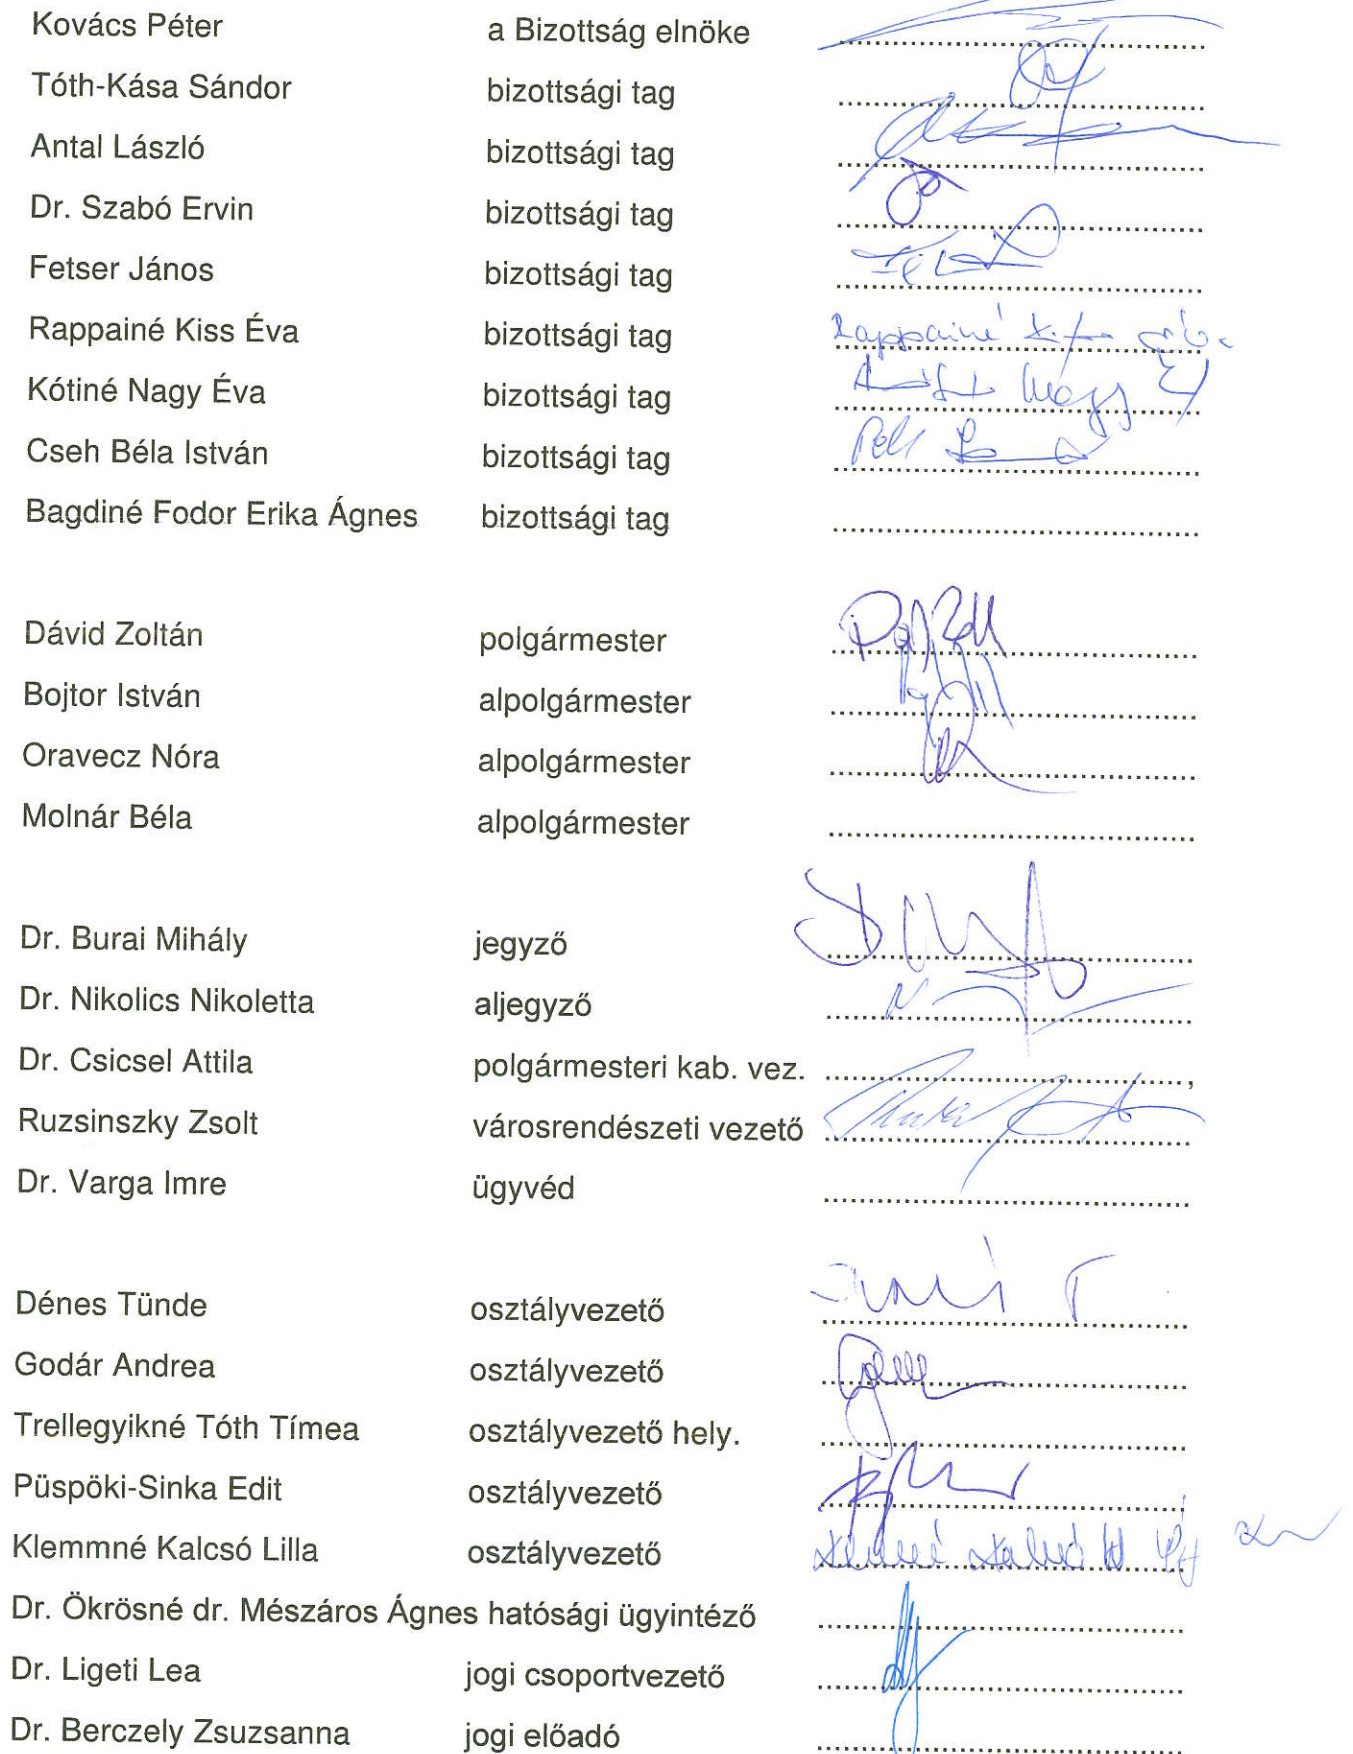 Kovács Péter a Bizottság elnöke
Tóth-Kása Sándor bizottsági tag
Antal László bizottsági tag
Dr. Szabó Ervin bizottsági tag
Fetser János bizottsági tag
Rappainé Kiss Éva bizottsági tag Rappainé
Kótiné Nagy Éva bizottsági tag Nagy
Cseh Béla István bizottsági tag
Bagdiné Fodor Erika Ágnes bizottsági tag
Dávid Zoltán polgármester
Bojtor István alpolgármester
Oravecz Nóra alpolgármester
Molnár Béla alpolgármester
Dr. Burai Mihály jegyző
Dr. Nikolics Nikoletta aljegyző
Dr. Csicsel Attila polgármesteri kab. vez.
Ruzsinszky Zsolt városrendészeti vezető
Dr. Varga Imre ügyvéd
Dénes Tünde osztályvezető
Godár Andrea osztályvezető
Trellegyikné Tóth Tímea osztályvezető hely.
Püspöki-Sinka Edit osztályvezető
Klemmné Kalcsó Lilla osztályvezető
Dr. Ökrösné dr. Mészáros Ágnes hatósági ügyintéző
Dr. Ligeti Lea jogi csoportvezető
Dr. Berczely Zsuzsanna jogi előadó